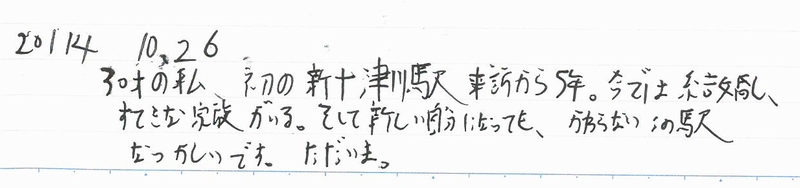 20114 10.26
30才の私、初の新十津川駅 来訪から5年。今では結婚し、
すてきな家族がいる。そして新しい自分になっても、変わらないこの駅
なつかしいです。ただいま。